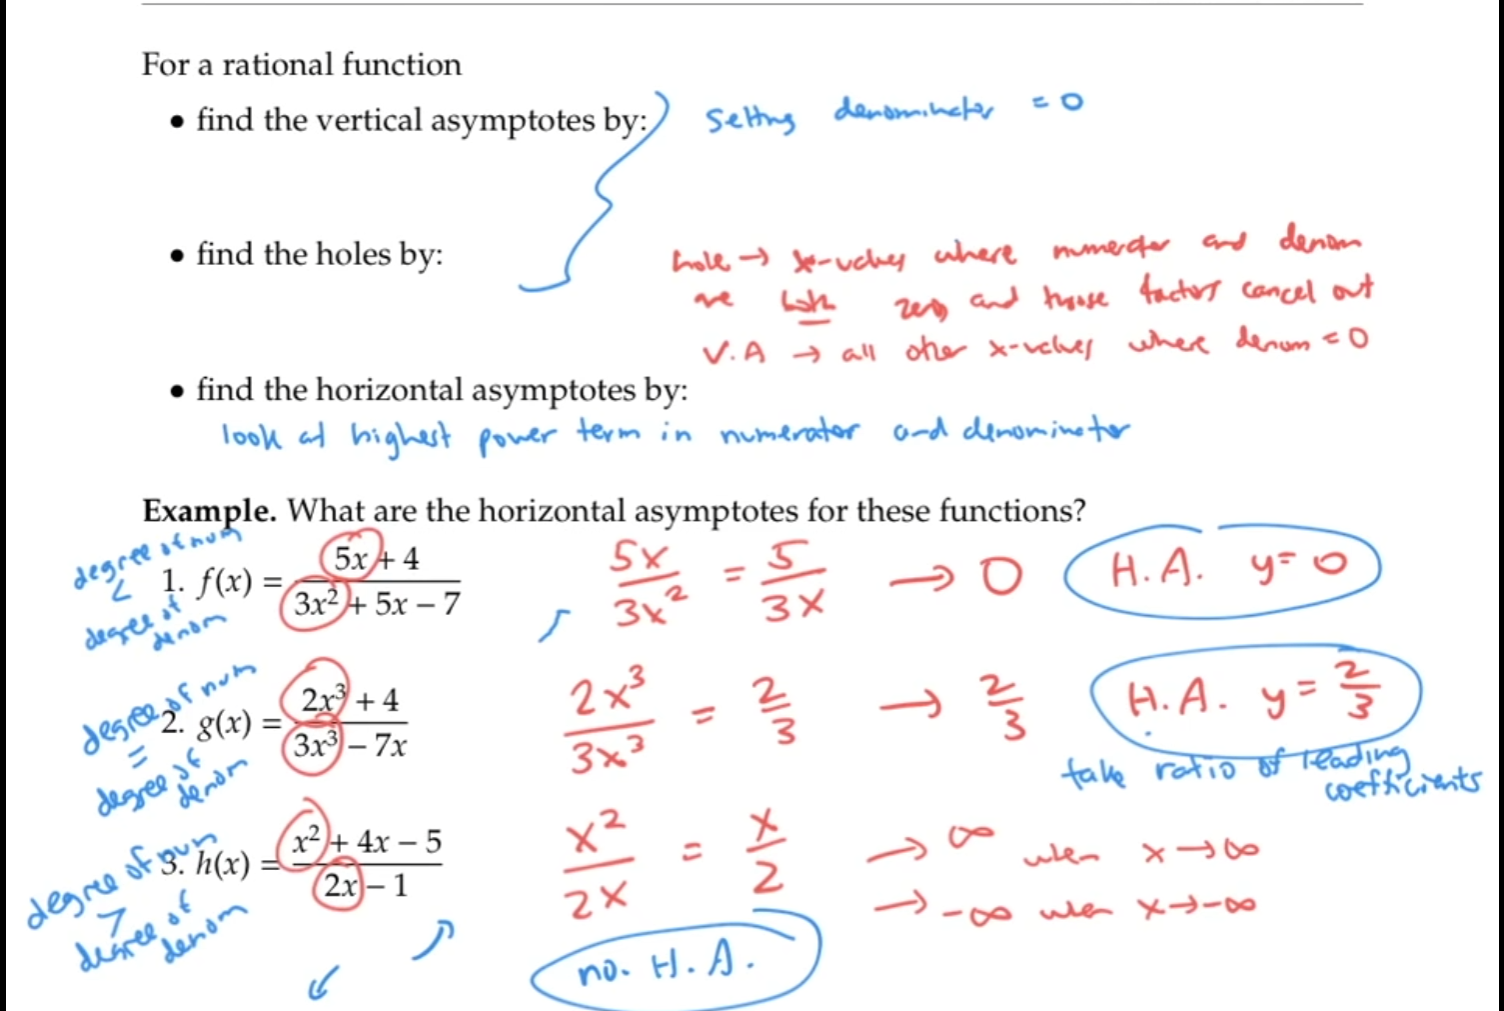 For a rational function
• find the vertical asymptotes by: setting denominator = 0
• find the holes by:
hole → x-values where numerator and denom
are both zero, and those factors cancel out
V.A → all other x-values where denom = 0
• find the horizontal asymptotes by:
look at highest power term in numerator and denominator
Example. What are the horizontal asymptotes for these functions?
degree of num
<
degree of
denom
1. f(x) = (5x + 4)/(3x² + 5x − 7)
5x/3x² = 5/3x → 0
H.A. y = 0
degree of num
=
degree of
denom
2. g(x) = (2x³ + 4)/(3x³ − 7x)
2x³/3x³ = 2/3 → 2/3
H.A. y = 2/3
take ratio of leading
coefficients
degree of num
>
degree of
denom
3. h(x) = (x² + 4x − 5)/(2x − 1)
x²/2x = x/2
→ ∞ when x → ∞
→ -∞ when x → -∞
no. H.A.